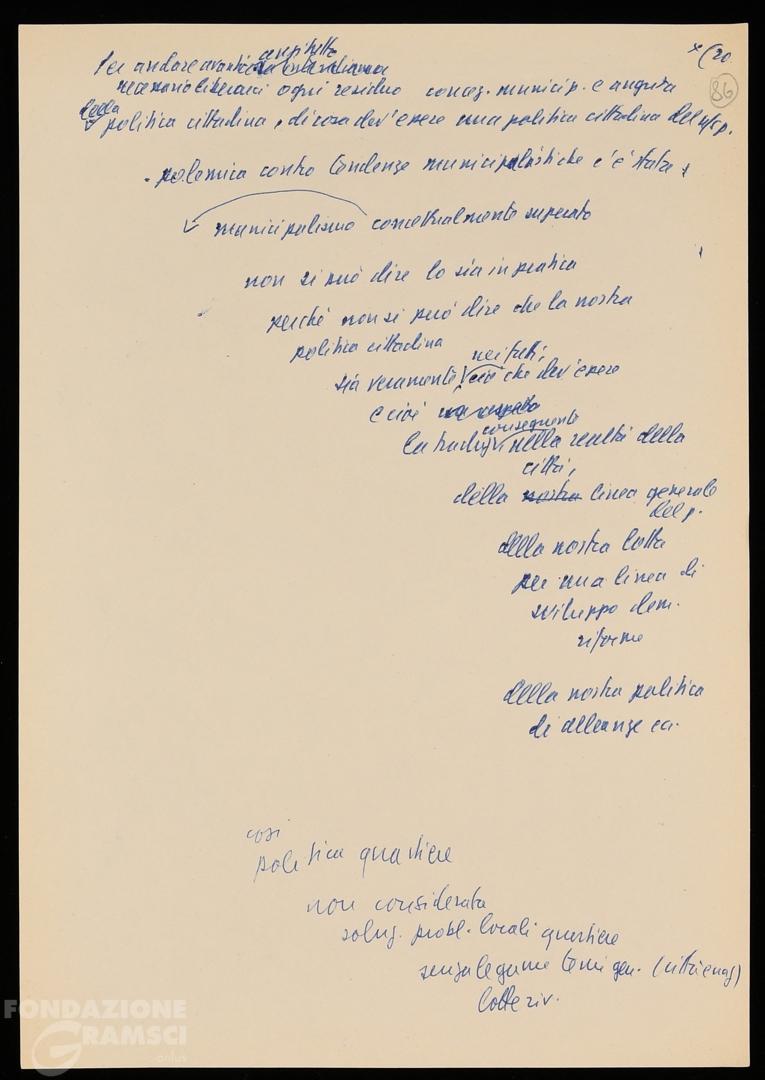 (20
86
Per andare avanti
necessario liberarci ogni residuo concez. municip. e angusta
della
politica cittadina, di cosa dev'essere una politica cittadina del n/s p.
- polemica contro tendenze municipalistiche c'è stata
municipalismo concettualmente superato
non si può dire lo sia in pratica
perché non si può dire che la nostra
politica cittadina
nei fatti,
sia veramente, ciò che dev'essere
e cioè
conseguente
la traduz. nella realtà della
città,
della nostra linea generale
del p.
della nostra lotta
per una linea di
sviluppo dem.
riforme
della nostra politica
di alleanze ecc.
così
politica quartiere
non considerata
soluz. probl. locali quartiere
senza legame temi gen. (città e naz)
lotte riv.
FONDAZIONE
GRAMSCI
onlus